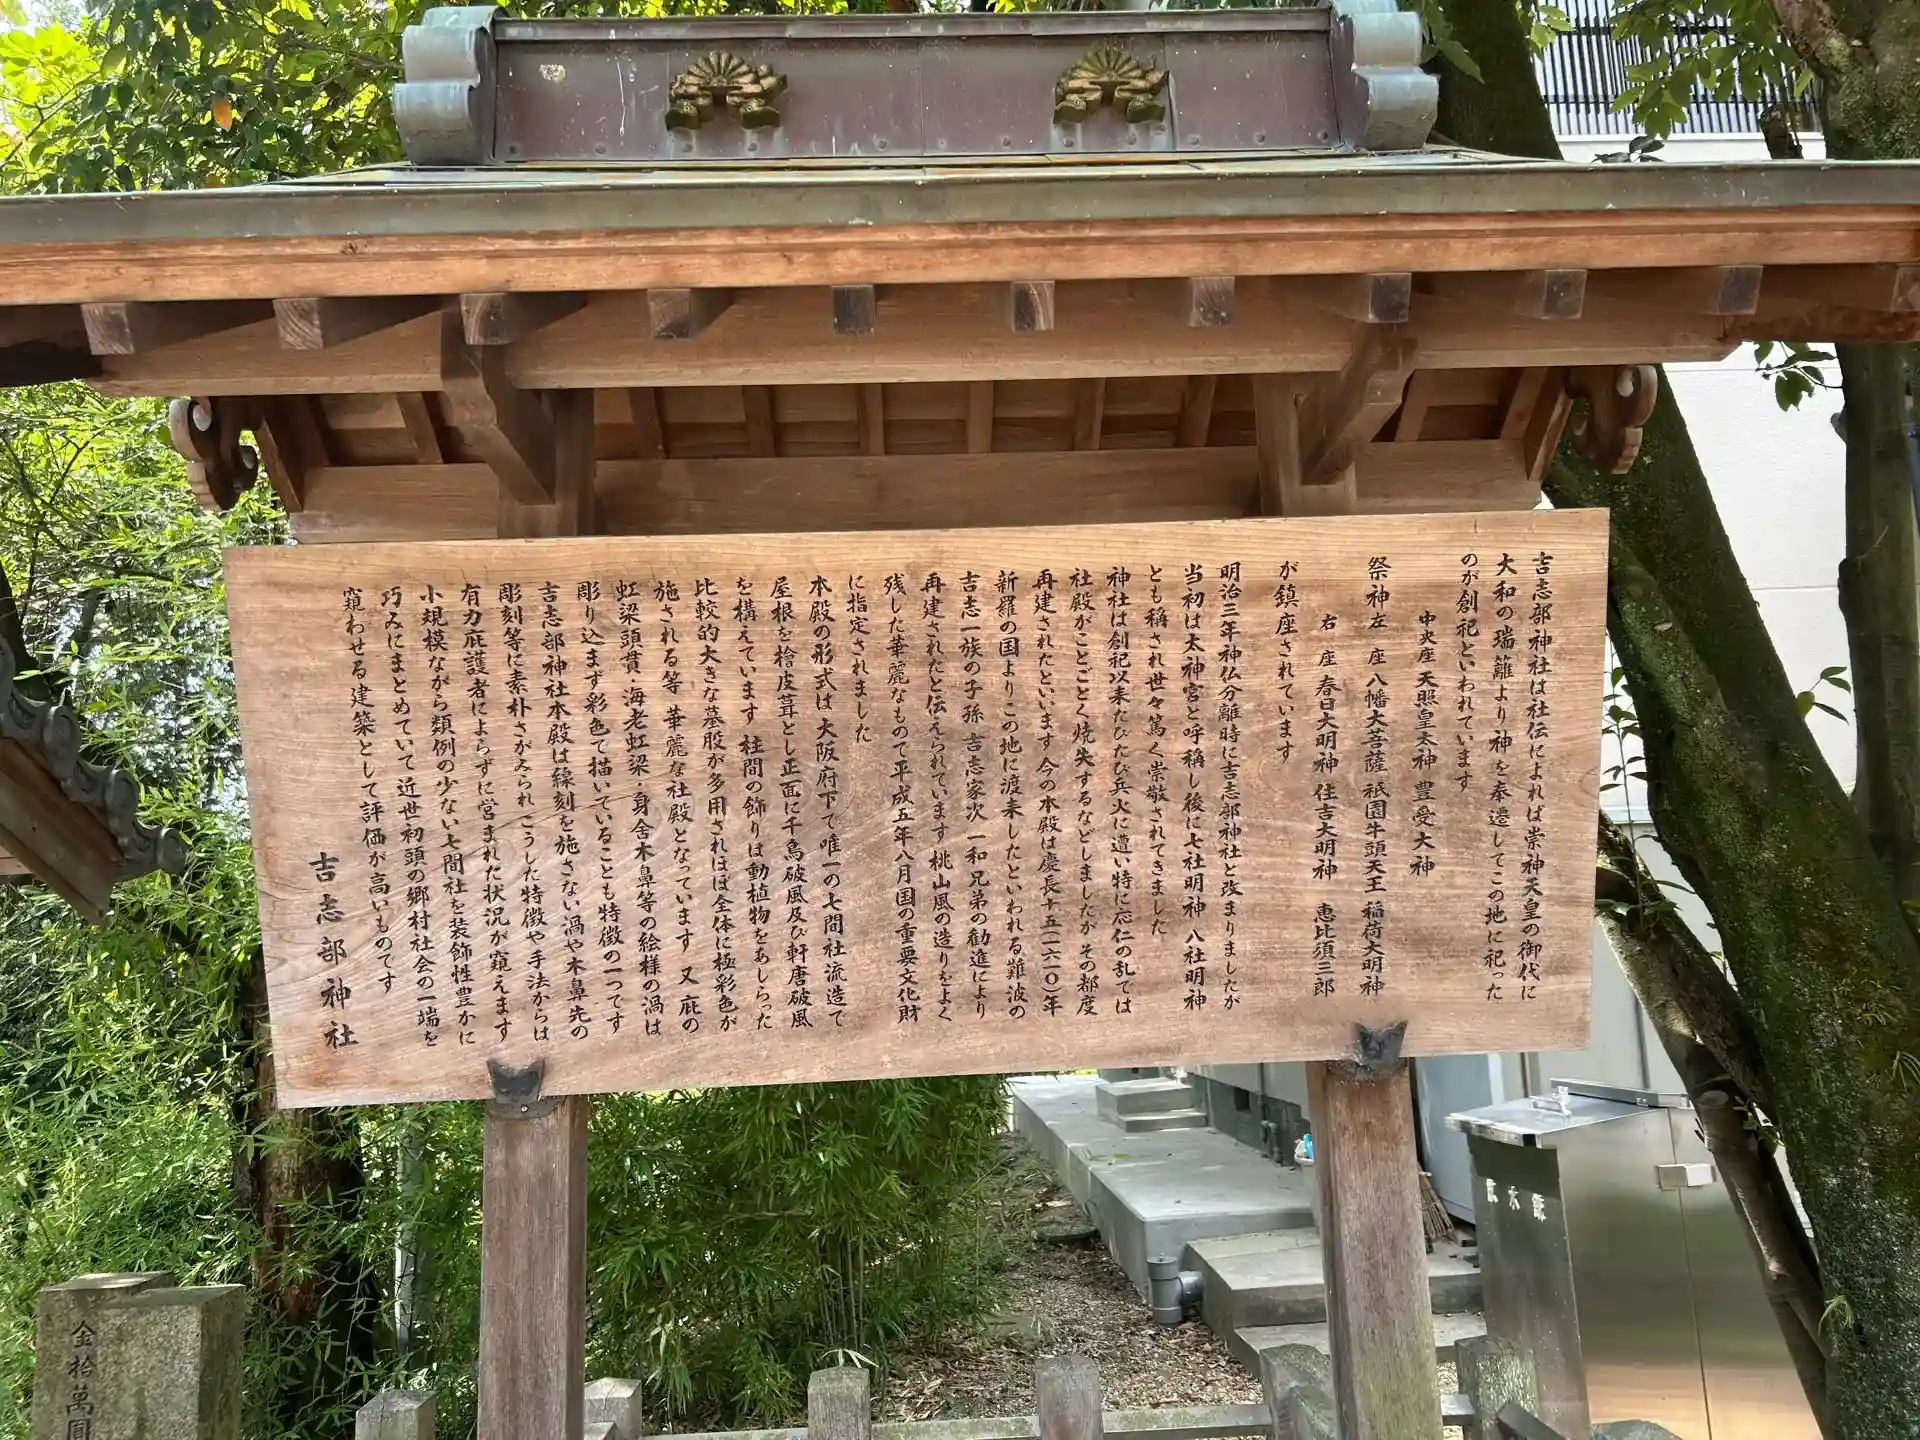 吉志部神社は社伝によれば崇神天皇の御代に
大和の瑞籬より神を奉遷してこの地に祀った
のが創祀といわれています
中央座 天照皇太神 豊受大神
祭神左 座 八幡大菩薩 祇園牛頭天王 稲荷大明神
右 座 春日大明神 住吉大明神 恵比須三郎
が鎮座されています
明治三年神仏分離時に吉志部神社と改まりましたが
当初は太神宮と呼称し後に七社明神 八社明神
とも称され世々篤く崇敬されてきました
神社は創祀以来たびたび兵火に遭い特に応仁の乱では
社殿がことごとく焼失するなどしましたが その都度
再建されたといいます 今の本殿は慶長十五(一六一〇)年
新羅の国よりこの地に渡来したといわれる難波の
吉志一族の子孫 吉志家次 一和兄弟の勧進により
再建されたと伝えられています 桃山風の造りをよく
残した華麗なもので平成五年八月国の重要文化財
に指定されました
本殿の形式は大阪府下で唯一の七間社流造で
屋根を檜皮葺とし正面に千鳥破風及び軒唐破風
を構えています 柱間の飾りは動植物をあしらった
比較的大きな蟇股が多用されほぼ全体に極彩色が
施される等 華麗な社殿となっています 又 庇の
虹梁頭貫・海老虹梁・身舎木鼻等の絵様の渦は
彫り込まず彩色で描いていることも特徴の一つです
吉志部神社本殿は線刻を施さない渦や木鼻先の
彫刻等に素朴さがみられ こうした特徴や手法からは
有力庇護者によらずに営まれた状況が窺えます
小規模ながら類例の少ない七間社を装飾性豊かに
巧みにまとめていて近世初頭の郷村社会の一端を
窺わせる建築として評価が高いものです
吉志部神社
金拾萬圓